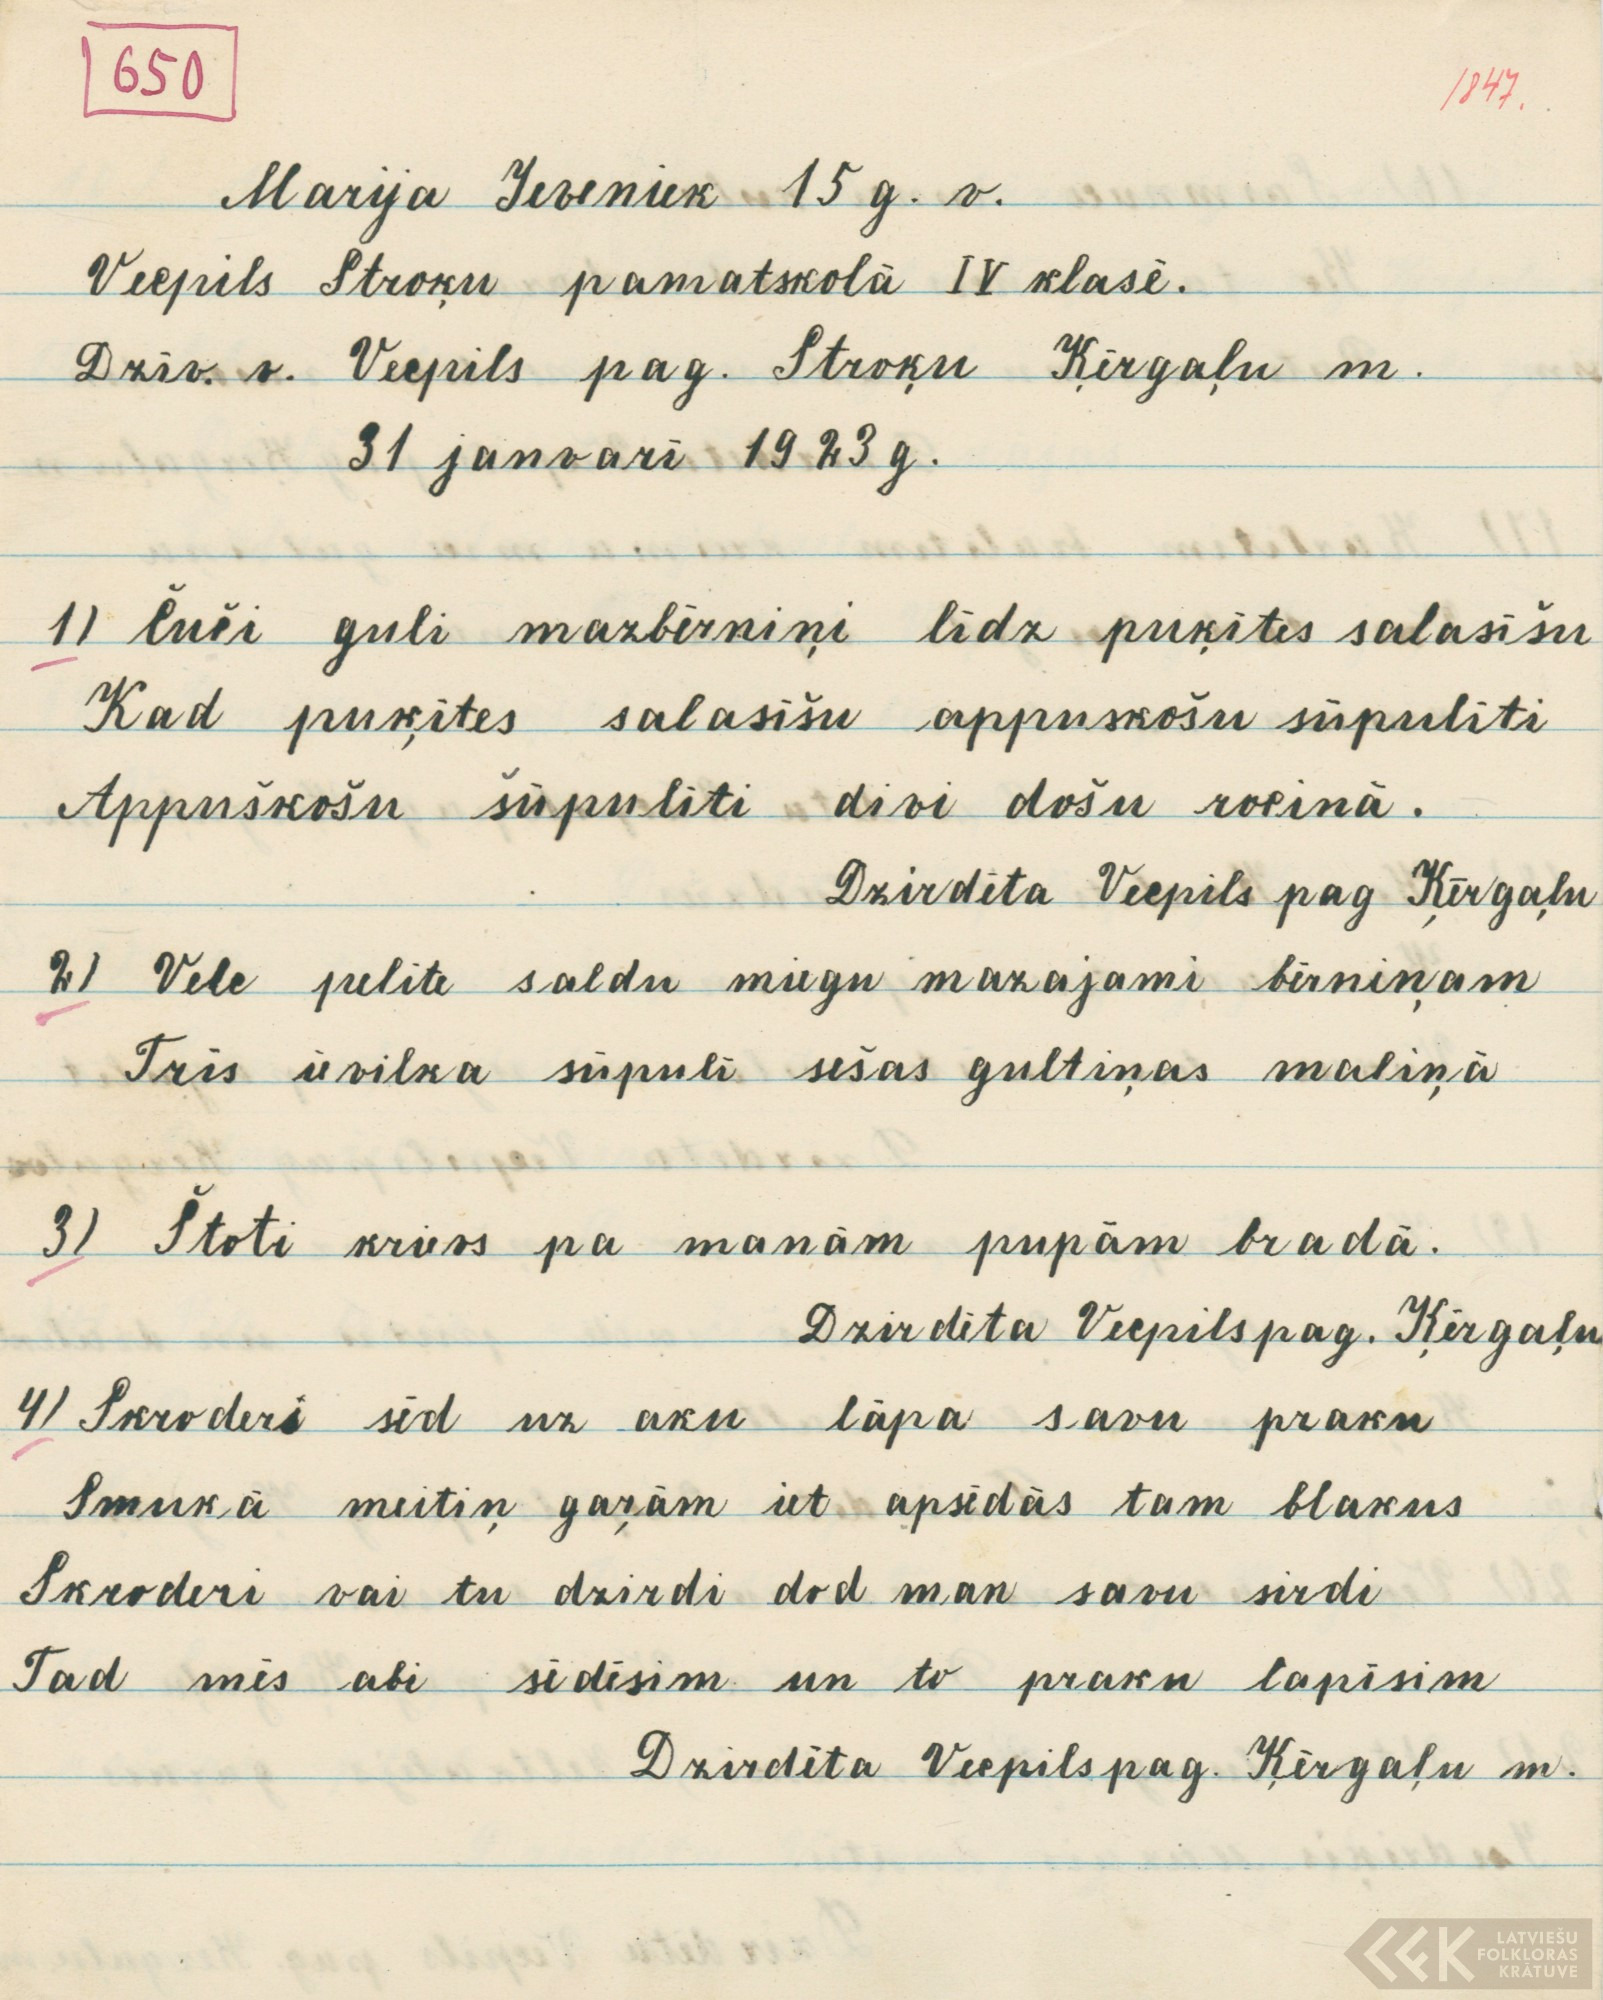 650
1847.
Marija Ieveniek 15 g. v.
Vecpils Stroķu pamatskolā IV klasē.
Dzīv. v. Vecpils pag. Stroķu Ķērgaļu m.
31 janvarī 1923 g.
1) Čuči guli mazbērniņi līdz puķītes salasīšu
Kad puķītes salasīšu appuskošu sūpulīti
Appuškošu šūpulīti divi došu rocinā.
Dzirdēta Vecpils pag Ķērgaļu
2) Vele pelīte saldu miegu mazajami bērniņam
Trīs ievilka sūpulī sešas gultiņas maliņā
3) Štoti krievs pa manām pupām bradā.
Dzirdēta Vecpils pag. Ķērgaļu
4) Skroderi sēd uz aku lāpa savu praku
Smukā meitiņ gaŗām iet apsēdās tam blakus
Skroderi vai tu dzirdi dod man savu sirdi
Tad mēs abi sēdēsim un to praku lapīsim
Dzirdēta Vecpils pag. Ķērgaļu m.
LATVIEŠU
FOLKLORAS
KRĀTUVE